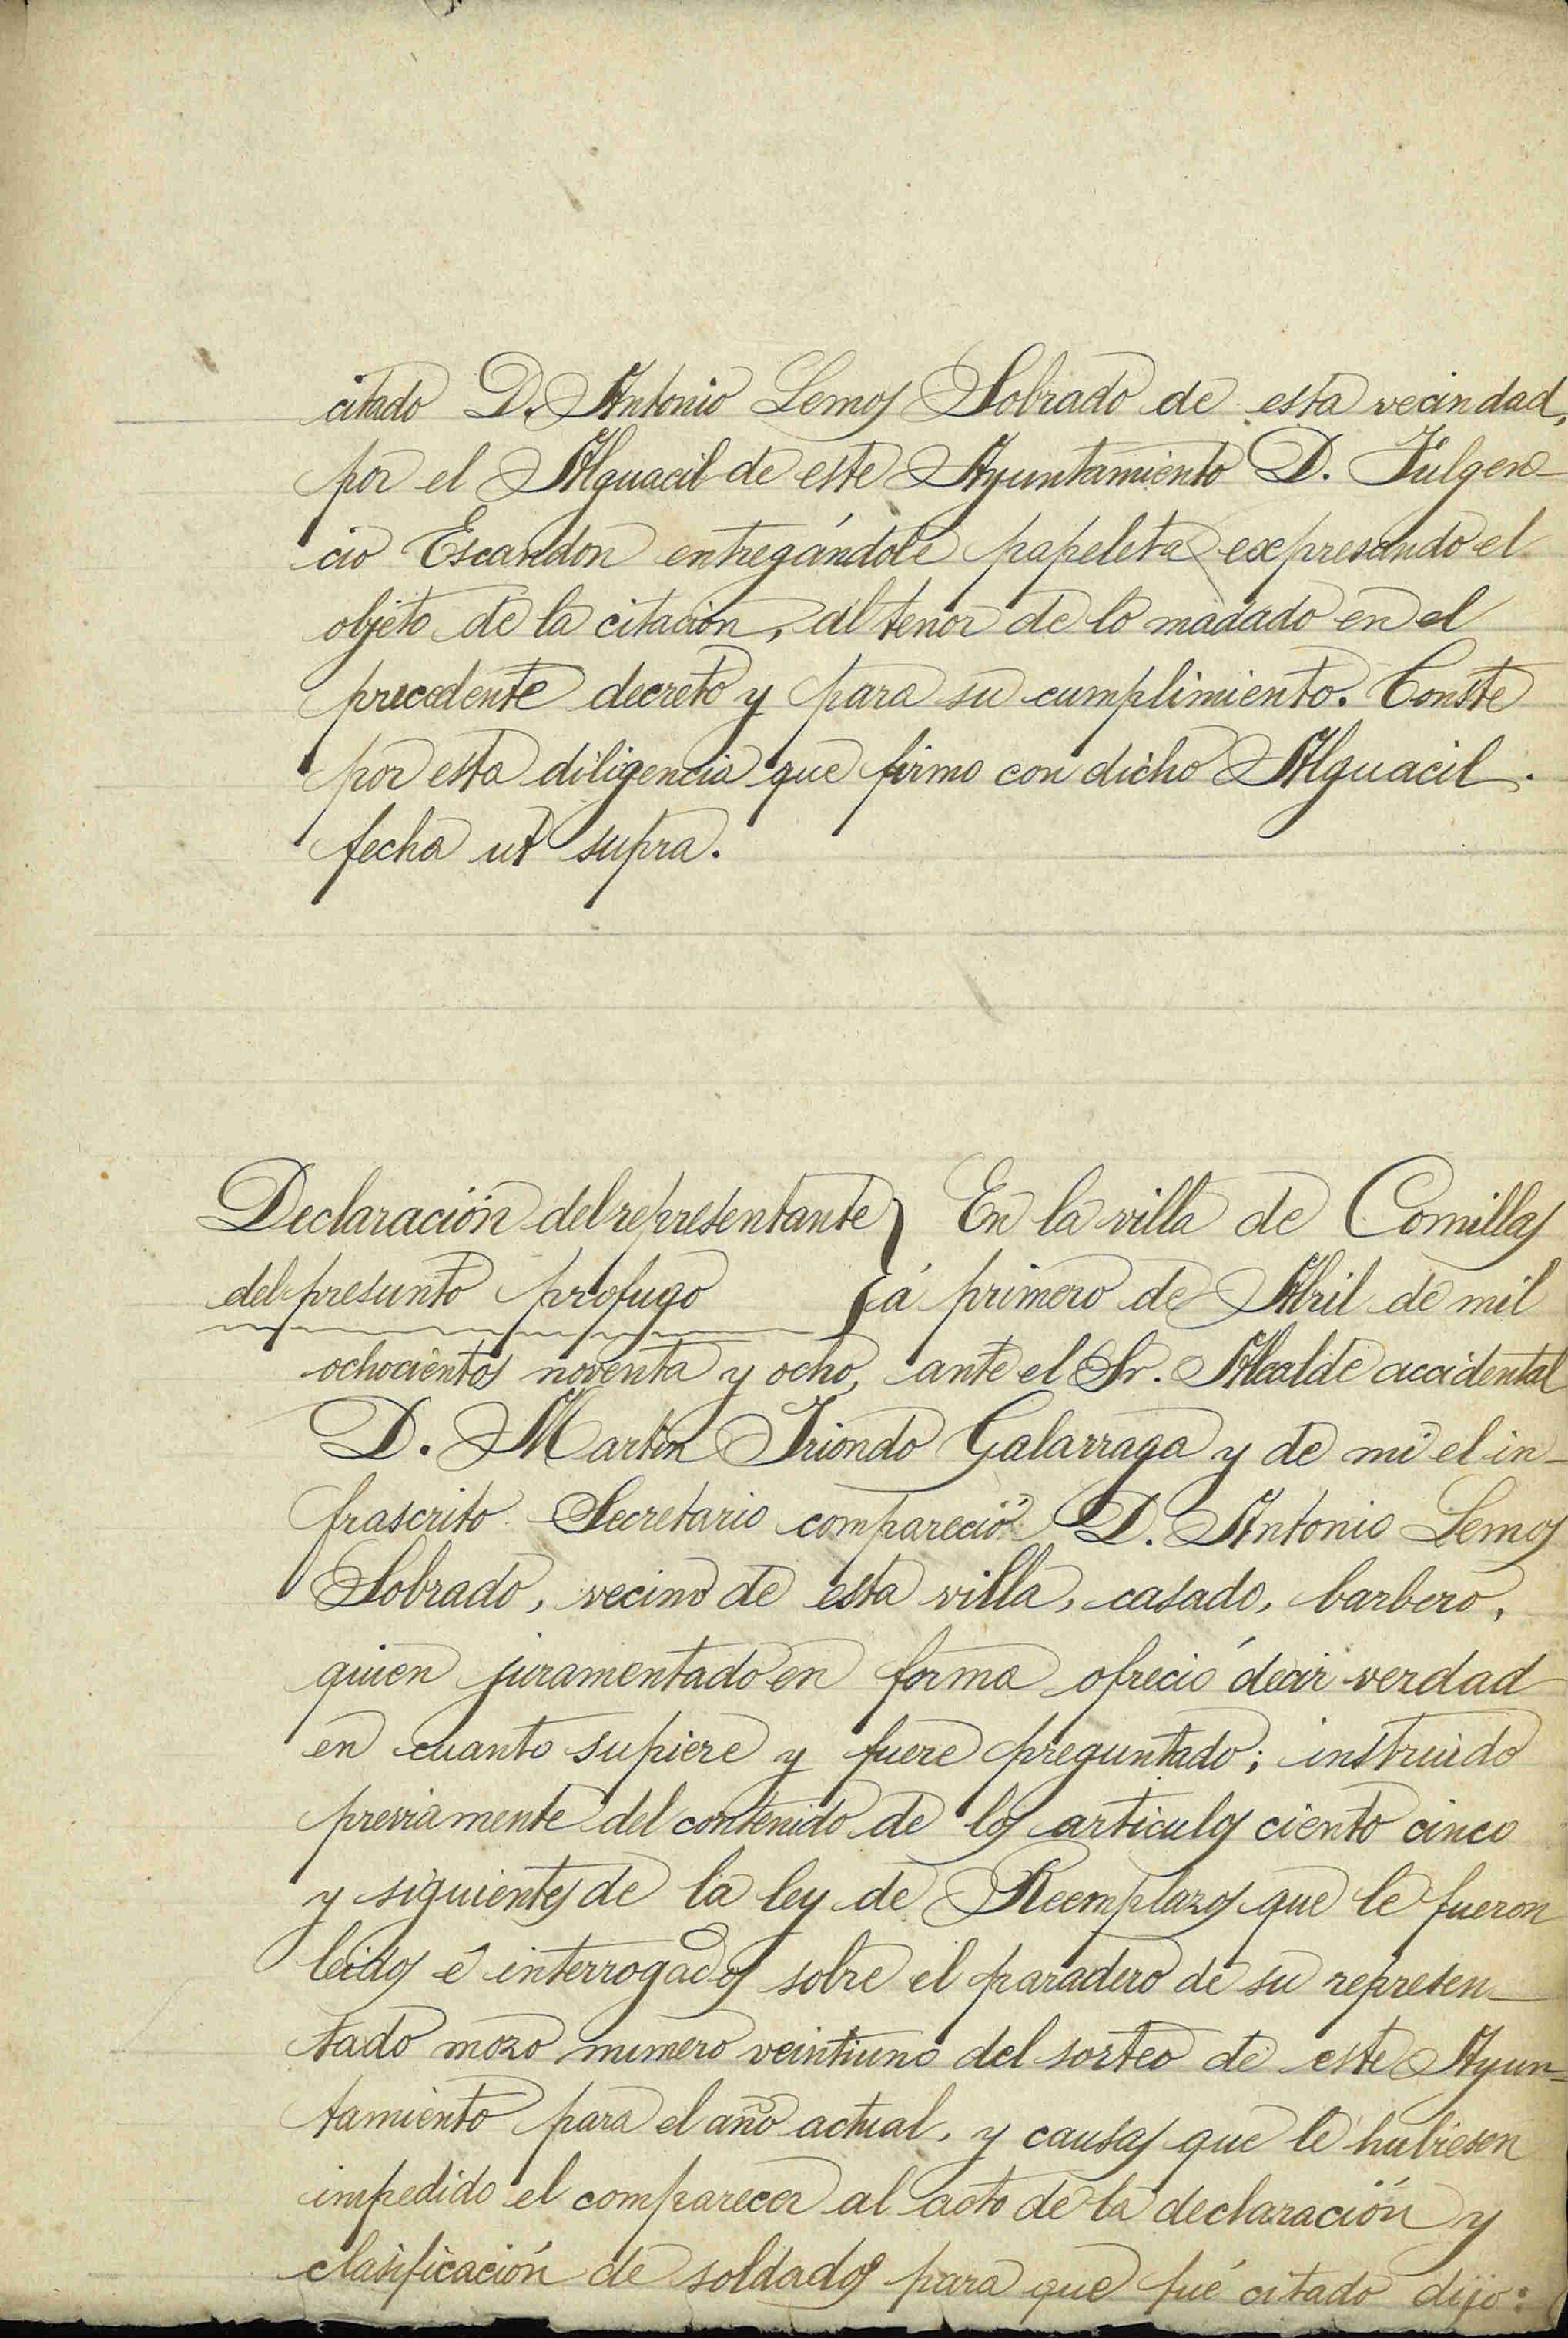 citado D. Antonio Lemos Sobrado de esta vecindad,
por el Alguacil de este Ayuntamiento D. Fulgen-
cio Escandon entregándole papeleta expresando el
objeto de la citación, al tenor de lo madado en el
precedente decreto y para su cumplimiento. Conste
por esta diligencia que firmo con dicho Alguacil.
fecha ut supra.
Declaración del representante } En la villa de Comillas
del presunto profugo á primero de Abril de mil
ochocientos noventa y ocho, ante el Sr. Alcalde accidental
D. Martin Iriondo Galarraga y de mi el in-
frascrito Secretario compareció D. Antonio Lemos
Sobrado, vecino de esta villa, casado, barbero,
quien juramentado en forma ofreció decir verdad
en cuanto supiere y fuere preguntado; instruido
previamente del contenido de los articulos ciento cinco
y siguientes de la ley de Reemplazos que le fueron
leidos é interrogados sobre el paradero de su represen-
tado mozo numero veintiuno del sorteo de este Ayun=
tamiento para el año actual, y causas que le hubiesen
impedido el comparecer al acto de la declaración y
clasificación de soldados para que fué citado dijo: